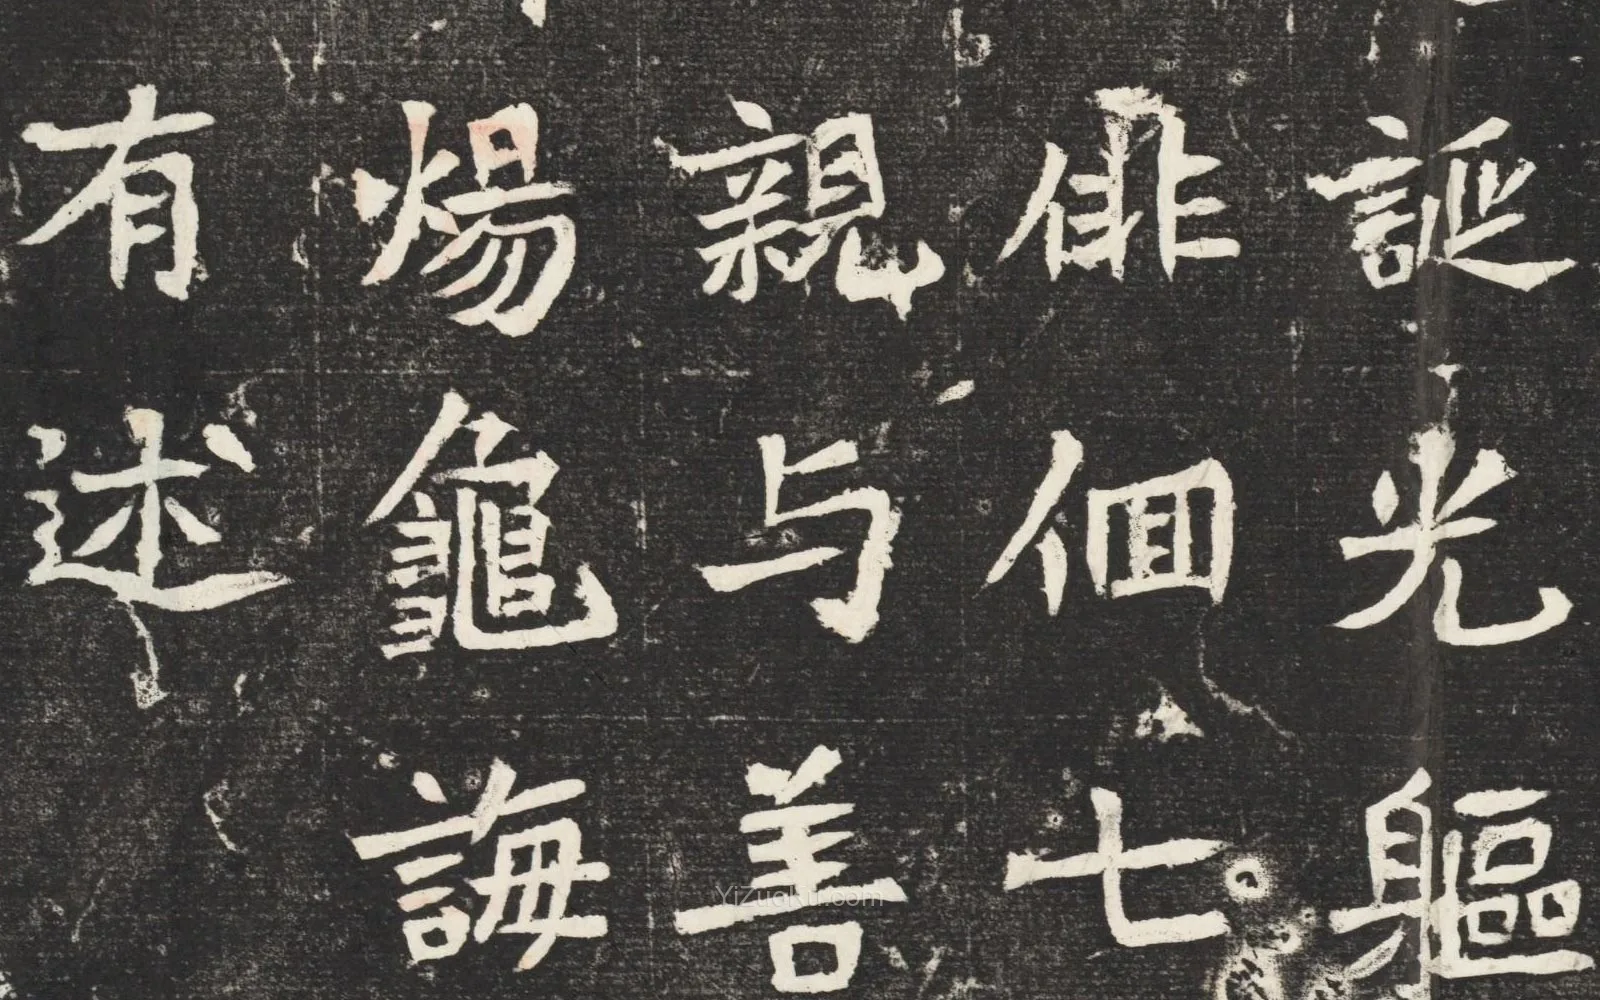 誕光軀
俳佪七
親与善
煬龜誨
有述
YiZuoKu.com